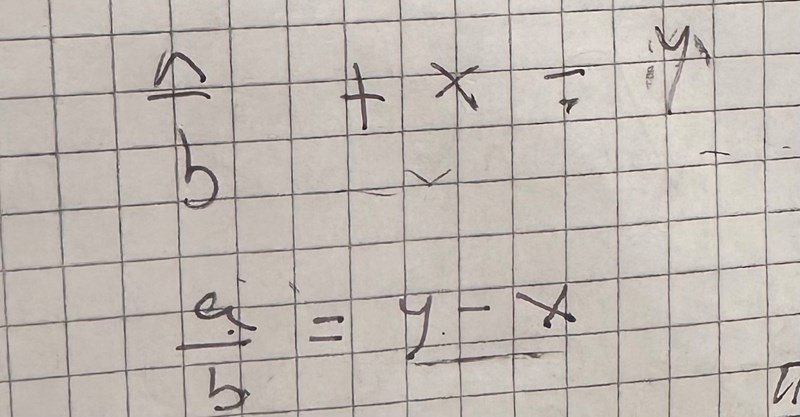 a/b + x = y
a/b = y - x